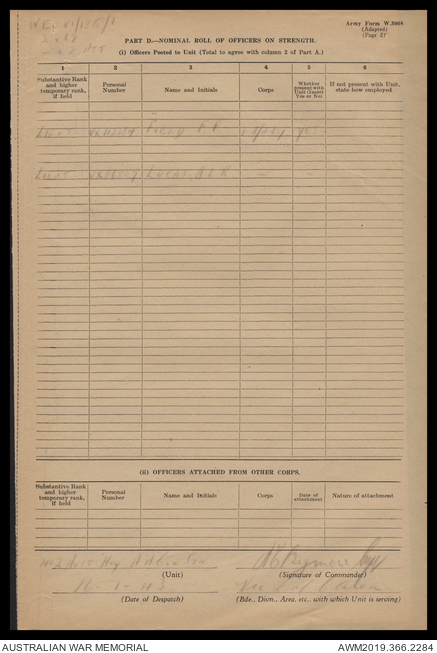 Army Form W.3008
(Adapted)
(Page 2)
PART D.—NOMINAL ROLL OF OFFICERS ON STRENGTH.
(i) Officers Posted to Unit (Total to agree with column 2 of Part A.)
1 2 3 4 5 6
Substantive Rank and higher temporary rank, if held
Personal Number
Name and Initials
Corps
Whether present with Unit (Insert Yes or No)
If not present with Unit, state how employed
Lieut
Lieut Lucas, A L R - -
(ii) OFFICERS ATTACHED FROM OTHER CORPS.
Substantive Rank and higher temporary rank, if held
Personal Number
Name and Initials
Corps
Date of attachment
Nature of attachment
(Unit) (Signature of Commander)
(Date of Despatch) (Bde., Divn., Area, etc., with which Unit is serving)
AUSTRALIAN WAR MEMORIAL AWM2019.366.2284